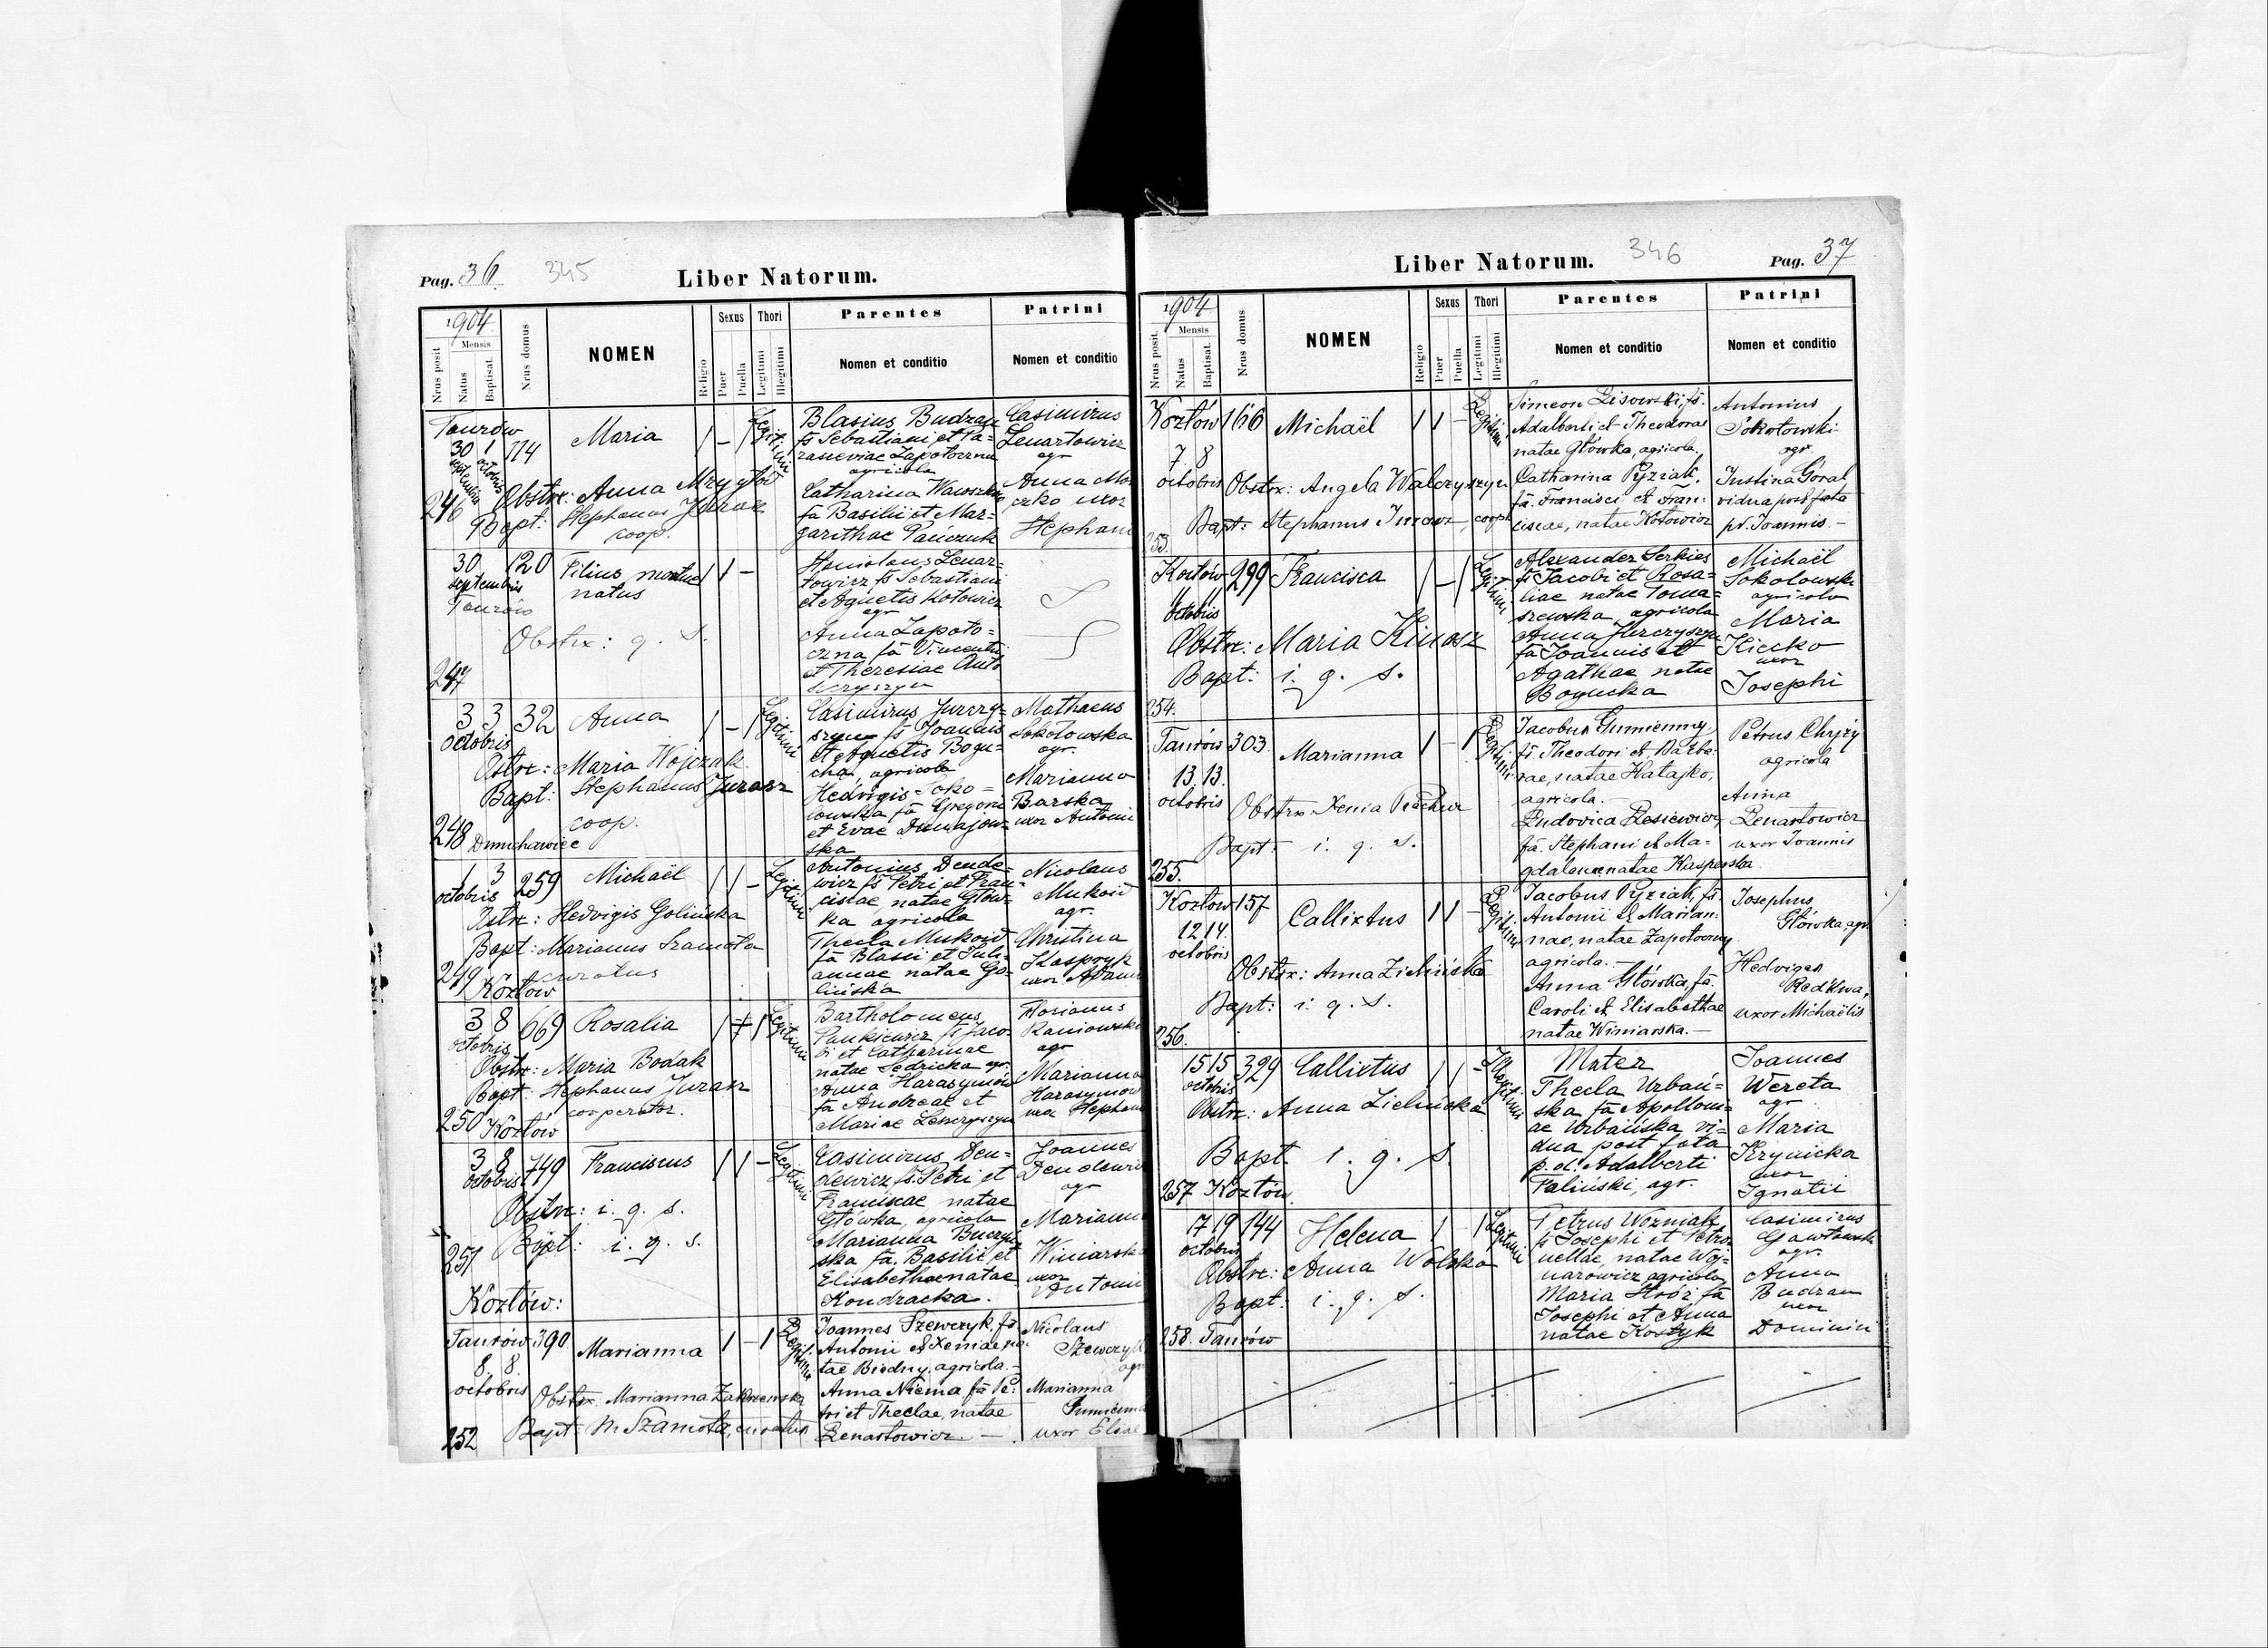 Pag. 36 345 Liber Natorum.
1904
Mensis
Nrus posit
Natus
Baptisat.
Nrus domus
NOMEN
Religio
Sexus
Puer
Puella
Thori
Legitimi
Illegitimi
Parentes
Nomen et conditio
Patrini
Nomen et conditio
Taurów
30 1 774
septembris octobris
Maria
Legitimi
Obstx: Anna Mrygłod
246 Bapt: Stephanus Jurasz
coop.
Blasius Budzan
fs Sebastiani et Pa-
rascewiae Zapotoczna
agricola
Catharina Wawszko
fa Basilii et Mar-
garithae Pańczuk
Casimirus
Lenartowicz
agr
Anna Mo
czko uxor
Stephani
30 120 Filius mortue
septembris natus
Taurów
Obstx: q. s.
247
Stanislaus Lenar-
towicz fs Sebastiani
et Agnetis Kotowicz
agr
Anna Zapoto-
czna fa Vincentii
et Theresiae
3 3 32 Anna
octobris
Legitimi
Obstx: Maria Wojczak
Bapt: Stephanus Jurasz
coop.
248
Casimirus Jurczy-
szyn fs Joannis
et Agnetis Bogu-
cka, agricola
Hedvigis Soko-
lowska fa Gregorii
et Evae Dunajow-
ska
Mathaeus
Sokołowska
agr.
Marianna
Barska
uxor Antonii
1 3 259 Michaël
octobris
Legitimi
Obstx: Hedvigis Golińska
Bapt: Marianus Szamota
249 curatus
Kozłów
Antonius Dende-
wicz fs Petri et Fran-
ciscae, natae Głów-
ka agricola
Thecla Mukoid
fa Blasii et Juli-
annae natae Go-
lińska
Nicolaus
Mukoid
agr.
Christina
Kaspryk
uxor Adami
3 8 669 Rosalia
octobris
Legitimi
Obstx: Maria Bodak
Bapt: Stephanus Jurasz
cooperator.
250 Kozłów
Bartholomeus
Pankiewicz fs Jaco-
bi et Catharinae
natae Sedricka agr.
Anna Harasymów
fa Andreae et
Mariae
Florianus
Raniowski
agr
Marianna
Harasymów
uxor Stephani
3 8 749 Franciscus
octobris
Legitimi
Obstx: i. q. s.
Bapt: i. q. s.
251
Kozłów:
Casimirus Den-
dewicz fs. Petri et
Franciscae natae
Główka, agricola
Marianna Buczyń
ska fa, Basilii et
Elisabethae natae
Kondracka.
Joannes
Dendewi
agr
Marianna
Winiarska
uxor
Antonii
Taurów 390 Marianna
8. 8.
octobris
Legitimi
Obstx. Marianna Zakrzewska
252 Bapt: M Szamota, curatus
Joannes Szewczyk, fs.
Antonii et Xeniae na-
tae Biedny, agricola.-
Anna Niema fa Pe-
tri et Theclae, natae
Lenartowicz. -
Nicolaus
Szewczyk
agr
Marianna
uxor Eliae
Liber Natorum. 346 Pag. 37
1904
Mensis
Nrus posit.
Natus
Baptisat.
Nrus domus
NOMEN
Religio
Sexus
Puer
Puella
Thori
Legitimi
Illegitimi
Parentes
Nomen et conditio
Patrini
Nomen et conditio
Kozłów 166 Michaël
7 8
octobris
Legitimi
Obstx: Angela Walczyszyn
Bapt: Stephanus Jurasz, coop.
253.
Simeon Lisowski, fs.
Adalberti et Theodoras
natae Główka, agricola.
Catharina Pyziak,
fa. Francisci et Fran-
ciscae, natae Kotowicz
Antonius
Sokołowski
agr.
Justina Góral
vidua post fata
pd. Joannis.-
Kozłów 299 Francisca
octobris
Legitimi
Obstx: Maria Kinasz
Bapt: i. q. s.
254.
Alexander Serkies
fs Jacobi et Rosa-
liae natae Toma-
szewska, agricola
Anna Jurczyszyn
fa Joannis et
Agathae natae
Bogucka
Michaël
Sokolowski
agricola
Maria
Kiczko
uxor
Josephi
Taurów 303. Marianna
13. 13.
octobris
Legitimi
Obstx. Xenia
Bapt: i. q. s.
255.
Jacobus Gumienny,
fs. Theodori et Barba-
rae, natae Hatajko,
agricola.-
Ludovica Lesiewicz,
fa. Stephani et Ma-
gdalenae natae Kasperska.
Petrus Chyży
agricola
Anna
Lenartowicz
uxor Joannis
Kozłów 157 Callixtus
12 14.
octobris
Legitimi
Obstx: Anna Zielińska
Bapt: i. q. s.
256.
Jacobus Pyziak, fs.
Antonii et Marian-
nae, natae Zapotoczny
agricola.-
Anna Główka, fa.
Caroli et Elisabethae
natae Winiarska.-
Josephus
Główka, agr
Hedviges
Redkwa,
uxor Michaëlis
15 15 329 Callixtus
octobris
Illegitimi
Obstx: Anna Zielińska
Bapt. i. q. s.
257 Kozłów.
Mater
Thecla Urbań-
ska fa Apolloni-
ae Urbańska vi-
dua post fata
p. d. Adalberti
Faliński, agr.
Joannes
Wereta
agr
Maria
Krynicka
uxor
Ignatii
17 19 144 Helena
octobris
Legitimi
Obstx: Anna Wolska
Bapt: i. q. s.
258. Taurów
Petrus Woźniak
fs Josephi et Petro-
nellae, natae Woj-
narowicz, agricola
Maria Hróź fa
Josephi et Anna
natae Kostyk
Casimirus
Gawłowski
agr.
Anna
Budzan
uxor
Dominici